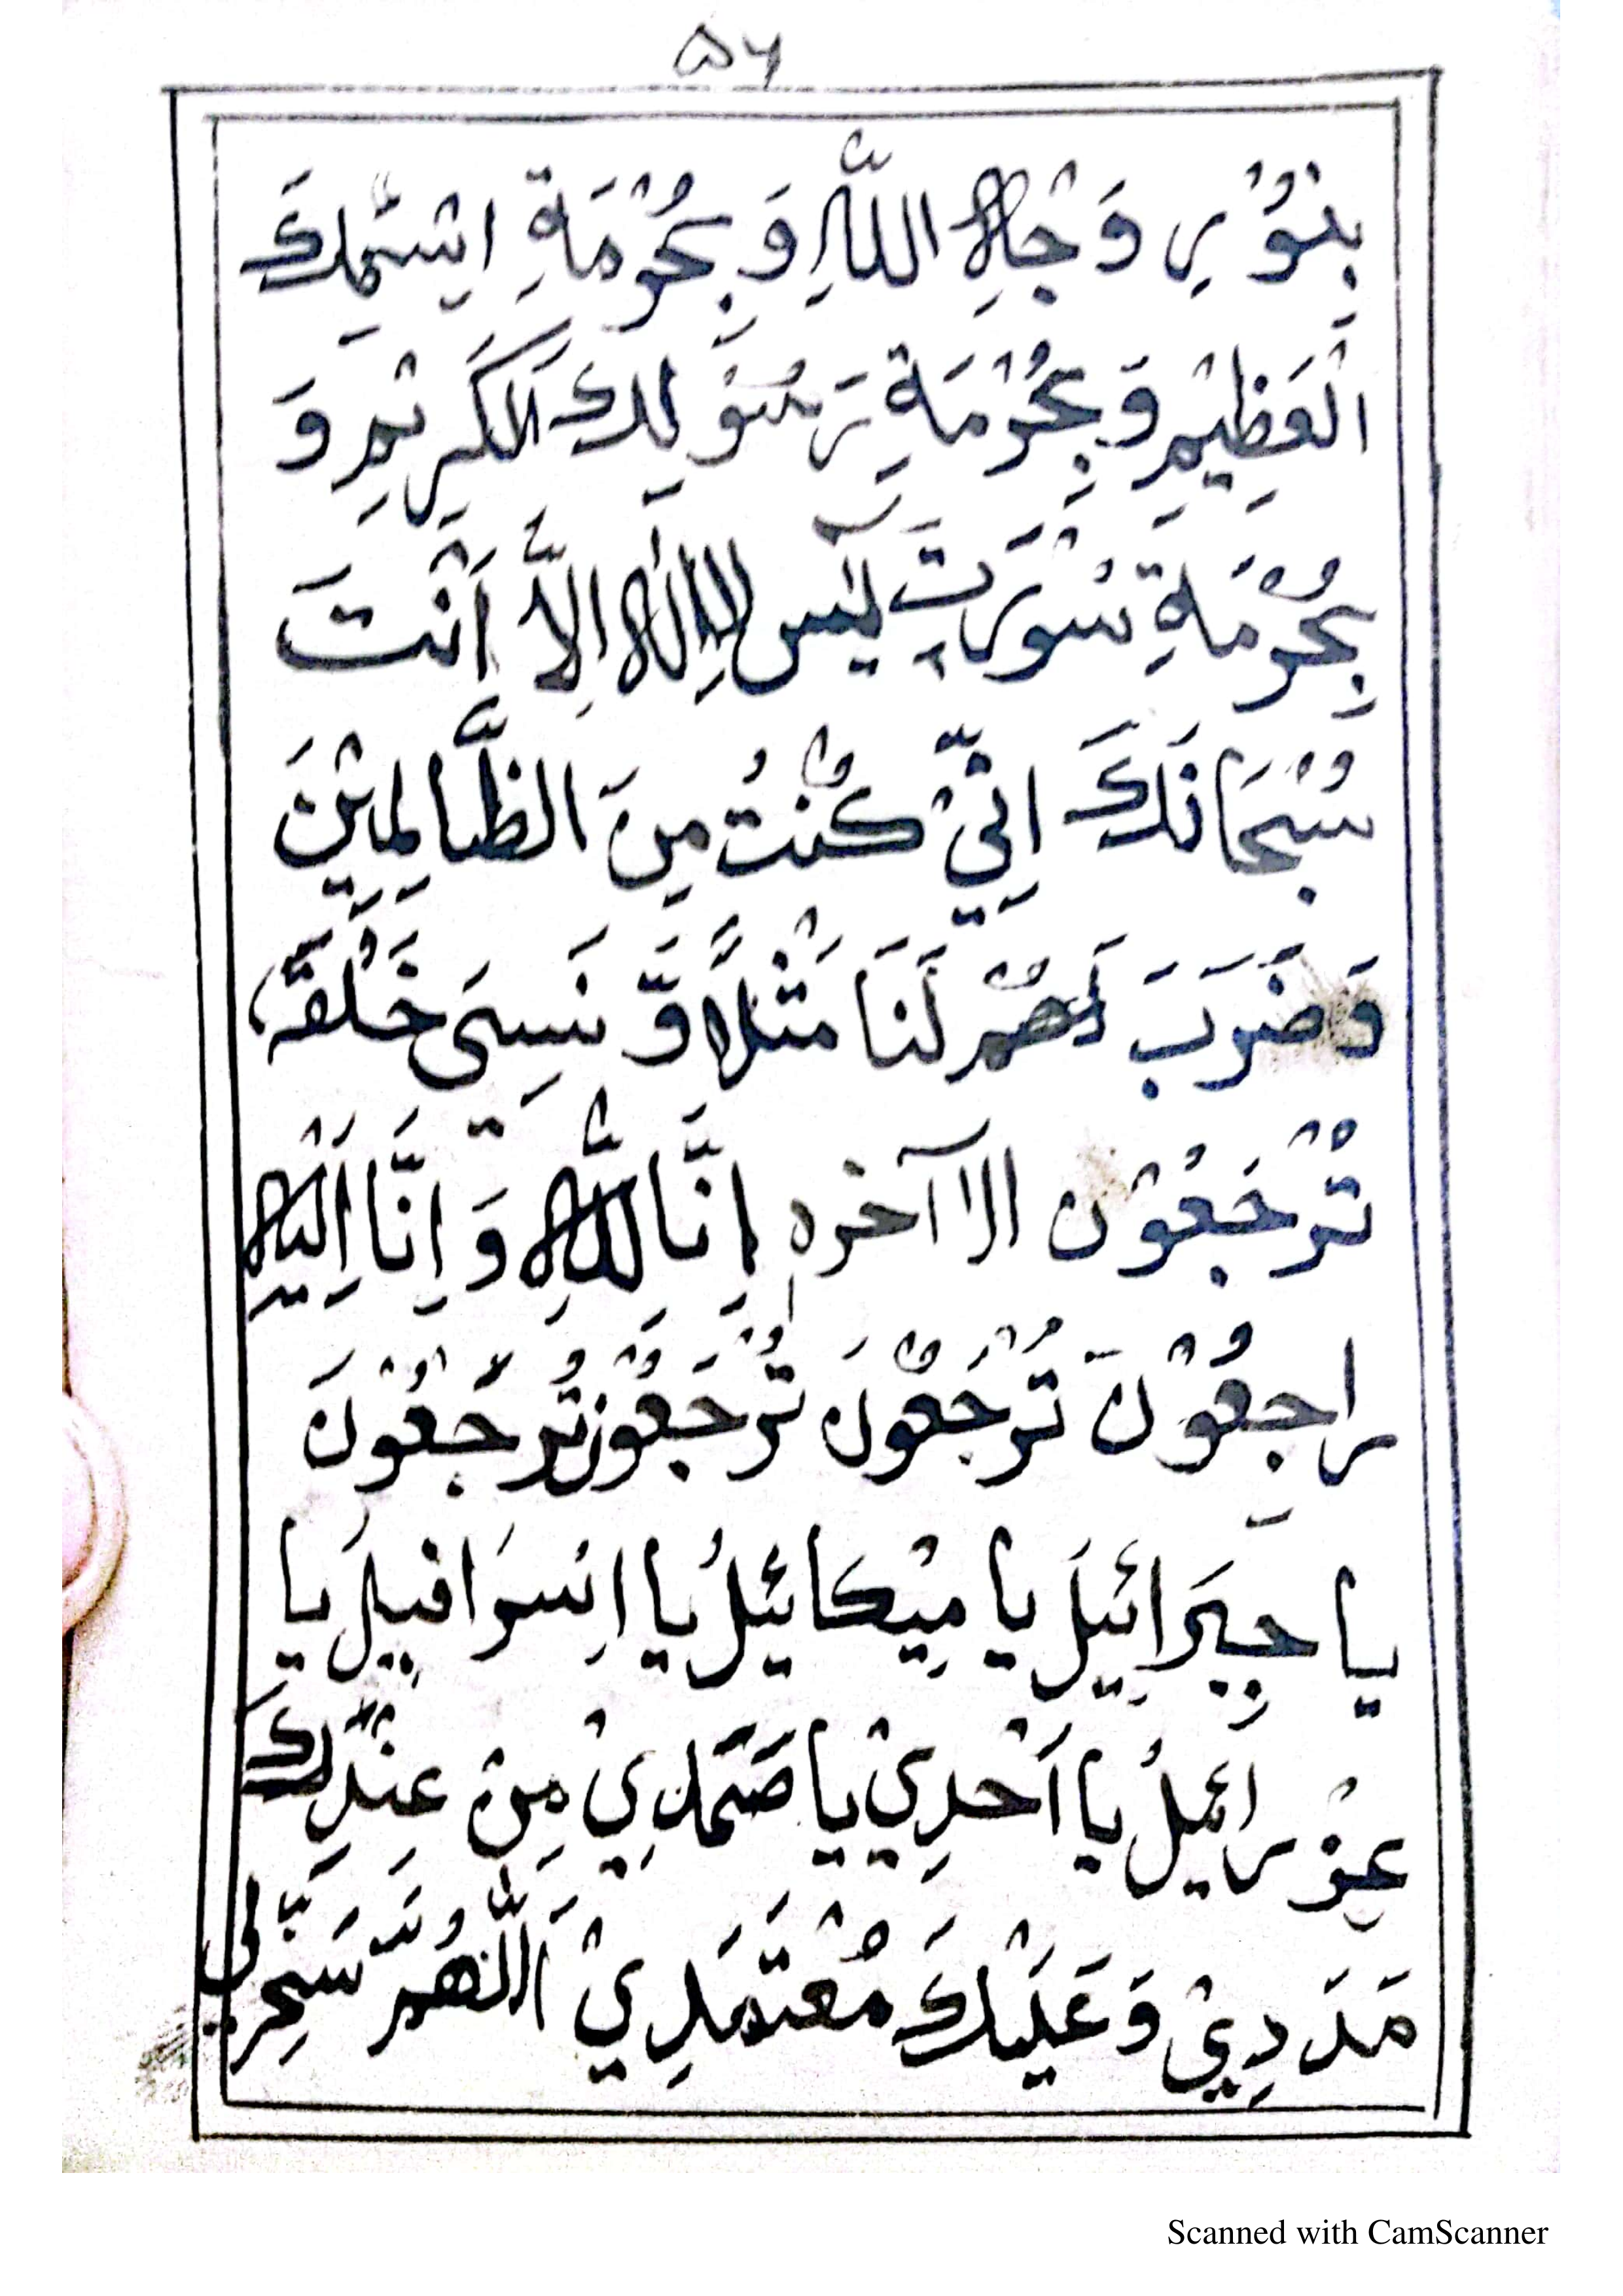 ۵۶
بِنُوْرِ وَجْاهِ اللّٰهِ وَ بِحُرْمَةِ اِسْمِكَ
الْعَظِيْمِ وَ بِحُرْمَةِ رَسُوْلِكَ الْكَرِيْمِ وَ
بِحُرْمَةِ سُوْرَتِ يٰس لاَاِلٰهَ اِلاَّ اَنْتَ
سُبْحَانَكَ اِنِّيْ كُنْتُ مِنَ الظَّالِمِيْنَ
وَضَرَبَ لَهُمْ لَنَا مَثْلاً وَّ نَسِىَ خَلْقَهٗ
تُرْجَعُوْن الاآخره اِنَّا لِلّٰهِ وَ اِنَّا اِلَيْهِ
رَاجِعُوْنَ تُرْجَعُوْنَ تُرْجَعُوْنَ تُرْجَعُوْنَ
يا جِبْرَائِيْلَ يا مِيْكَائِيْلُ يا اِسْرَافِيْلَ يا
عِزْرائيلُ يا اَحَدِيْ يا صَمَدِيْ مِنْ عِنْدِكَ
مَدَدِيْ وَ عَلَيْكَ مُعْتَمَدِيْ اَللّٰهُمَّ سَخِّرْلِي
Scanned with CamScanner